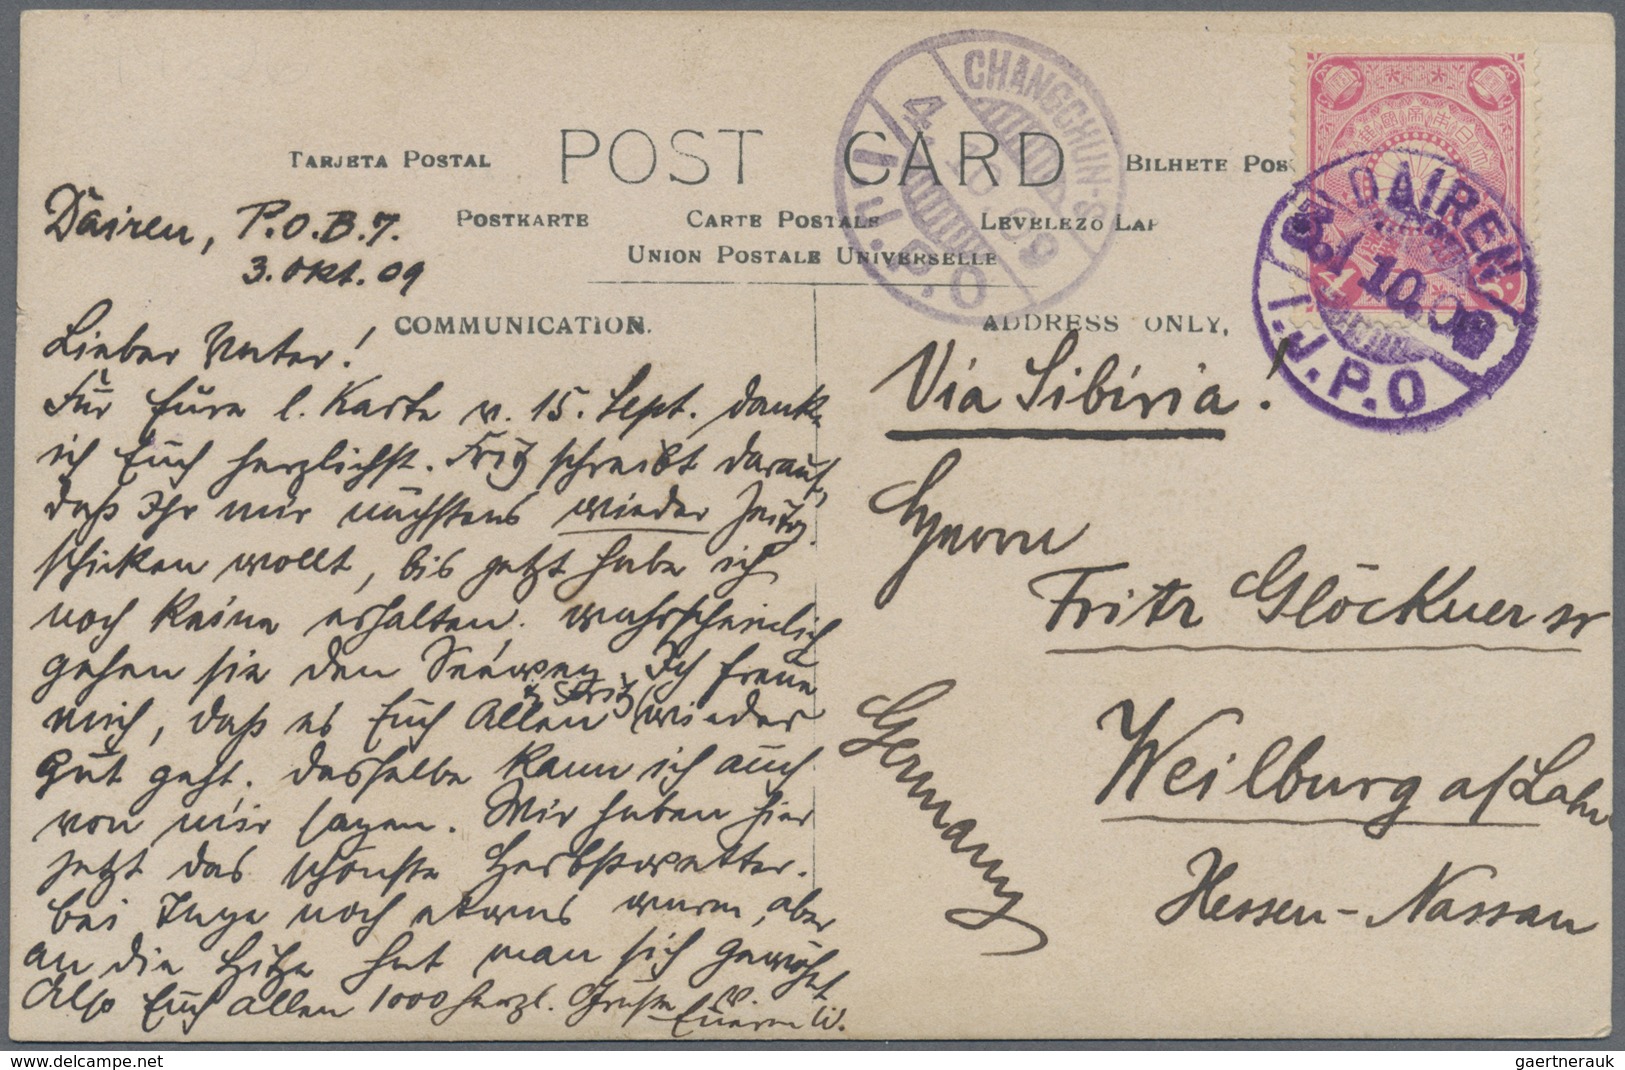 TARJETA POSTAL POST CARD BILHETE POS
POSTKARTE CARTE POSTALE LEVELEZO LAP
UNION POSTALE UNIVERSELLE
COMMUNICATION.
ADDRESS ONLY.
CHANGCHUN-S
4.10.09
I.J.P.O
DAIREN
3.10.09
I.J.P.O
4
Dairen, P.O.B.7.
3. Okt. 09
Lieber Vater!
Für Eure l. Karte v. 15. Sept. danke
ich Euch herzlichst. Fritz schreibt darauf,
daß Ihr mir nächstens wieder Zeitg.
schicken wollt, bis jetzt habe ich
noch keine erhalten. wahrscheinlich
gehen sie den Seeweg. Ich freue
mich, daß es Euch Allen & Fritz wieder
gut geht. dasselbe kann ich auch
von mir sagen. Wir haben hier
jetzt das schönste Herbstwetter.
bei Tage noch etwas warm, aber
an die Hitze hat man sich gewöhnt
Also Euch allen 1000 herzl. Grüße v.
Euerm W.
Via Sibiria!
Herrn
Fritz Glöckner sr
Weilburg a/Lahn
Hessen-Nassau
Germany
www.delcampe.net
gaertnerauk